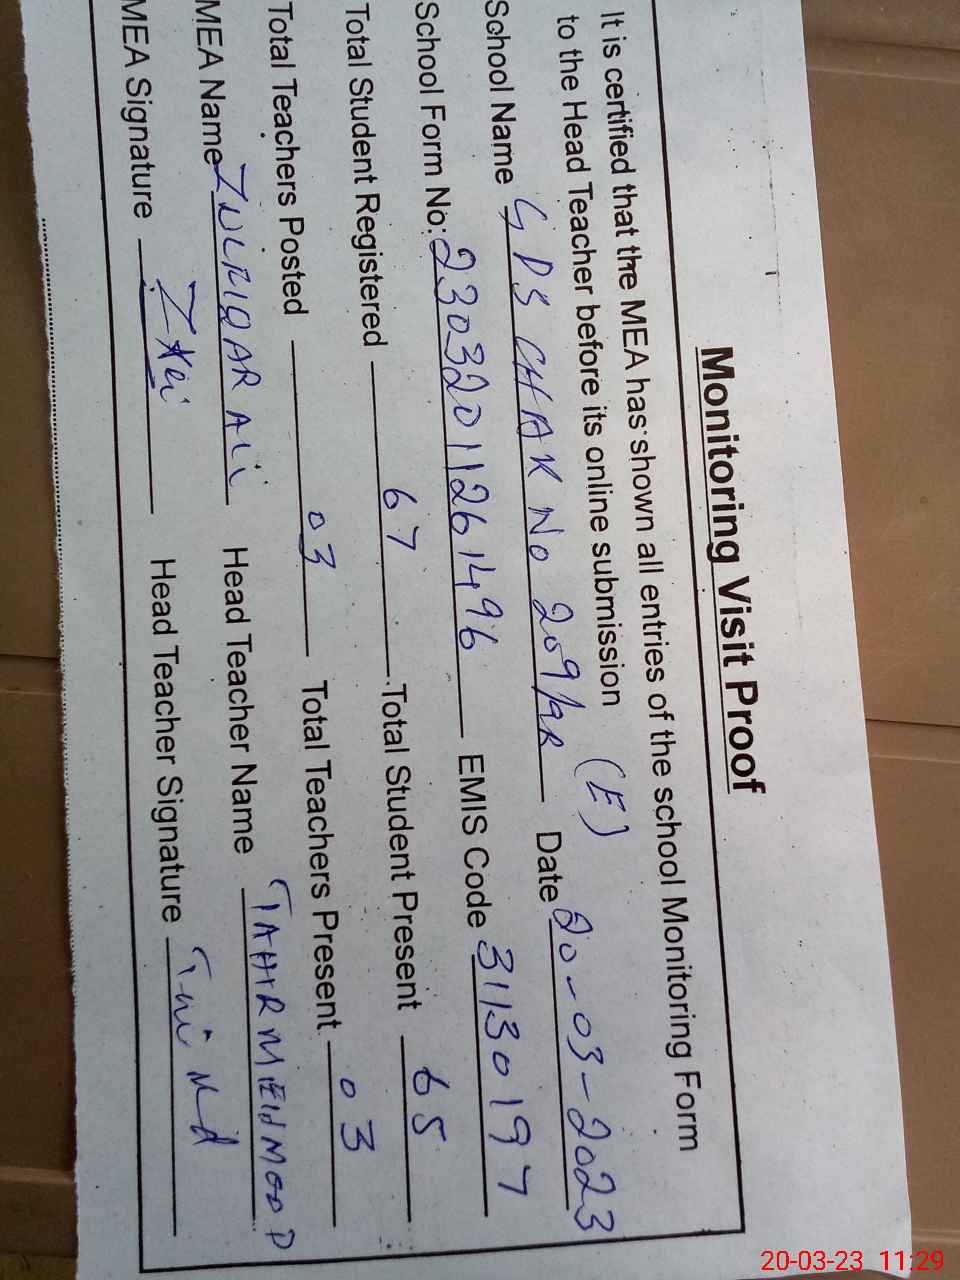 Monitoring Visit Proof
It is certified that the MEA has shown all entries of the school Monitoring Form
to the Head Teacher before its online submission (E)
School Name GPS CHAK No 209/9R Date 20-03-2023
School Form No: 23032011261496 EMIS Code 31130197
Total Student Registered 67 Total Student Present 65
Total Teachers Posted 03 Total Teachers Present 03
MEA Name ZULFIQAR ALi Head Teacher Name TAHIR MEHMOOD
MEA Signature Head Teacher Signature
20-03-23 11:29